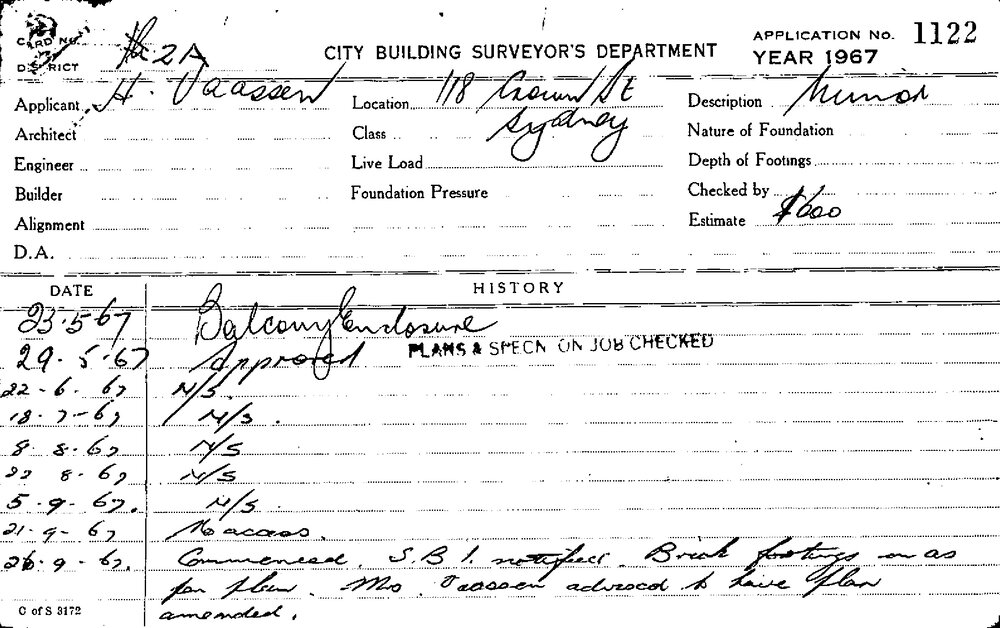 CARD No.
DISTRICT 2A
CITY BUILDING SURVEYOR'S DEPARTMENT
APPLICATION No. 1122
YEAR 1967
Applicant H. Vaassen Location 118 Crown St Description Minor
Architect Class Sydney Nature of Foundation
Engineer Live Load Depth of Footings
Builder Foundation Pressure Checked by
Alignment Estimate $600
D.A.
DATE HISTORY
23.5.67 Balcony Enclosure
29.5.67 Approved PLANS & SPECN ON JOB CHECKED
22-6-67 N/S.
18-7-67 N/S.
8-8-67 N/S
22 8-67 N/S
5-9-67. N/S.
21-9-67 No access.
26-9-67. Commenced. S.B.I. notified. Brick footings in as
per plan. Mrs Vaassen advised to have plan
amended.
C of S 3172